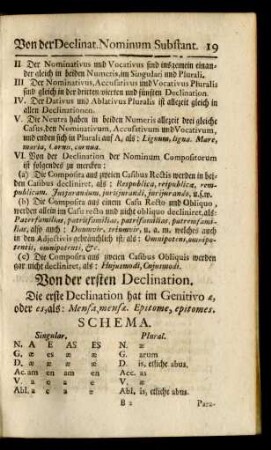 Von der Declinat. Nominum Substant. 19
II Der Nominativus und Vocativus sind insgemein einan-
der gleich in beiden Numeris, im Singulari und Plurali.
III Der Nominativus, Accusativus und Vocativus Pluralis
sind gleich in der dritten vierten und fünften Declination.
IV. Der Dativus und Ablativus Pluralis ist allezeit gleich in
allen Declinationen.
V. Die Neutra haben in beiden Numeris allezeit drei gleiche
Casus, den Nominativum, Accusativum und Vocativum,
und enden sich in Plurali auf A, als: Lignum, ligna. Mare,
maria, Cornu, cornua.
VI. Von der Declination der Nominum Compositorum
ist folgendes zu mercken:
(a) Die Composita aus zweien Casibus Rectis werden in bei-
den Casibus declinieret, als: Respublica, reipublicæ, rem-
publicam. Jusjurandum, jurisjurandi, jurijurando, u.s.w.
(b) Die Composita aus einem Casu Recto und Obliquo,
werden allein im Casu recto und nicht obliquo declinieret, als:
Paterfamilias, patrisfamilias, patrifamilias, patremfami-
lias, also auch: Duumvir, triumvir, u. a. m. welches auch
in den Adjectivis gebräuchlich ist: als: Omnipotens, omnipo-
tentis, omnipotenti, &c.
(c) Die Composita aus zweien Casibus Obliquis werden
gar nicht declinieret, als: Hujusmodi, Cujusmodi.
Von der ersten Declination.
Die erste Declination hat im Genitivo æ,
oder es, als: Mensa, mensæ. Epitome, epitomes.
SCHEMA.
Singular, Plural.
N. A E AS ES N. æ
G. æ es æ æ G. arum
D. æ æ æ æ D. is, etliche abus.
Ac. am en am en Acc. as
V. a e a e V. æ
Abl. a e a e Abl. is, etliche abus.
B 2 Para-